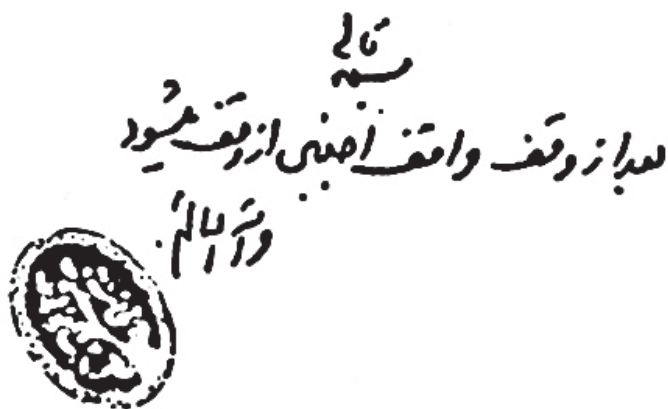 بسمه تعالی
بعد از وقف واقف اجنبی از وقف میشود
والله العالم